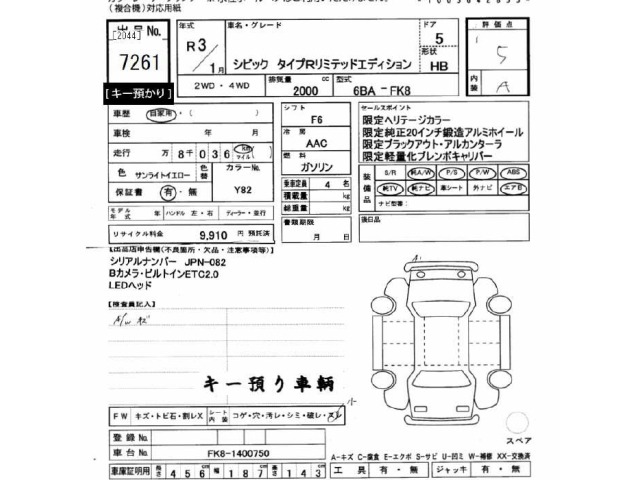 (複合機)対応用紙
出品No.
[2044]
7261
[キー預かり]
年式
R3/1月
車名・グレード
シビック タイプRリミテッドエディション
ドア
5
形状
HB
評価点
5
内装
A
2WD・4WD
排気量
2000 cc
型式
6BA-FK8
車歴 自家用・( )
車検 年 月
走行 万 8千 0 3 6 Km マイル ( )
色 サンライトイエロー
色替
カラーNo.
Y82
保証書 有・無
モデル年式 年 ハンドル 左・右 ディーラー・並行
リサイクル料金 9,910 円 預託済
シフト
F6
冷房
AAC
燃料
ガソリン
乗車定員 4 名
積載量 kg
総重量 kg
書類期限
月 日
セールスポイント
限定ヘリテージカラー
限定純正20インチ鍛造アルミホイール
限定ブラックアウト・アルカンターラ
限定軽量化ブレンボキャリパー
装備品
S/R 純A/W P/S P/W ABS
純TV 純ナビ 革シート 外ナビ エアB
ナビ型番:
後日品
【出品店申告欄(不良箇所・欠品・注意事項等)】
シリアルナンバー JPN-082
Bカメラ・ビルトインETC2.0
LEDヘッド
【検査員記入】
A/W キズ
キー預り車輌
A1
FW キズ・トビ石・割レX シート内装 コゲ・穴・汚レ・シミ・破レ・スレ 小
登録No.
車台No. FK8-1400750
車庫証明用 長さ 456 幅 187 高さ 143
スペア
A-キズ C-腐食 E-エクボ S-サビ U-凹ミ W-補修 XX-交換済
工具 有・無 ジャッキ 有・無